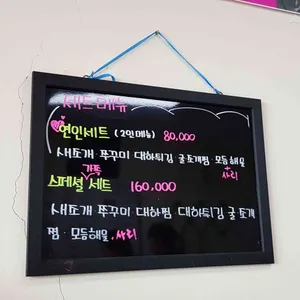 세트메뉴
연인세트 (2인메뉴) 80,000
새조개 쭈꾸미 대하튀김 굴 조개찜·모듬해물
+사리
가족
스페셜 세트 160,000
새조개 쭈꾸미 대하찜 대하튀김 굴 조개
찜·모듬해물, 사리